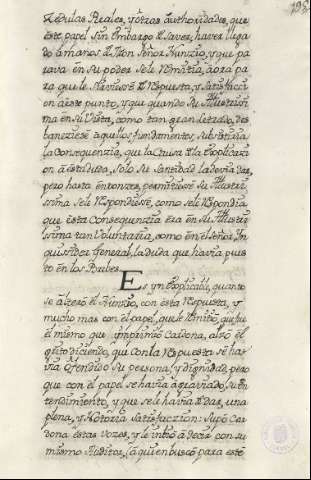 Zedulas Reales, y otras authoridades, que
este papel sin embargo de saver, haver llega
do a manos del Mon Señor Nunzio, y que pa
rava en su poder se le remitia, aora pa
ra que le sirviese de respuesta, y satisfacci
on a este punto, y que quando su Illustrissi
ma en su vista, como tan gran letrado, des
baneziese aquellos fundamentos, subsistiria
la Consequenzia, que la Causa de la explicazi
on a esta duda, solo su Santidad la devia dar,
pero hasta entonzes, permitiese su Illustri
ssima se le respondiese, como se le respondia
que esta Consequenzia era en su Illustri
ssima tan voluntaria, como en el señor In
quisidor General, la duda que havia pues
to en los Reales.
Es ynexplicable, quanto
se alteró el Nunzio, con esta respuesta, y
mucho mas con el papel, que se remitió, que fue
el mismo que ymprimió Cardona, alzó el
grito diziendo, que con la respuesta se ha
via ofendido su persona, y dignidad, pero
que con el papel se havia agraviado, su en
tendimiento, y que se le havia de dar, una
plena, y notoria satisfaczion: supo Car
dona estas vozes, y le inbió a dezir con su
mismo Auditor, (a quien buscó para este